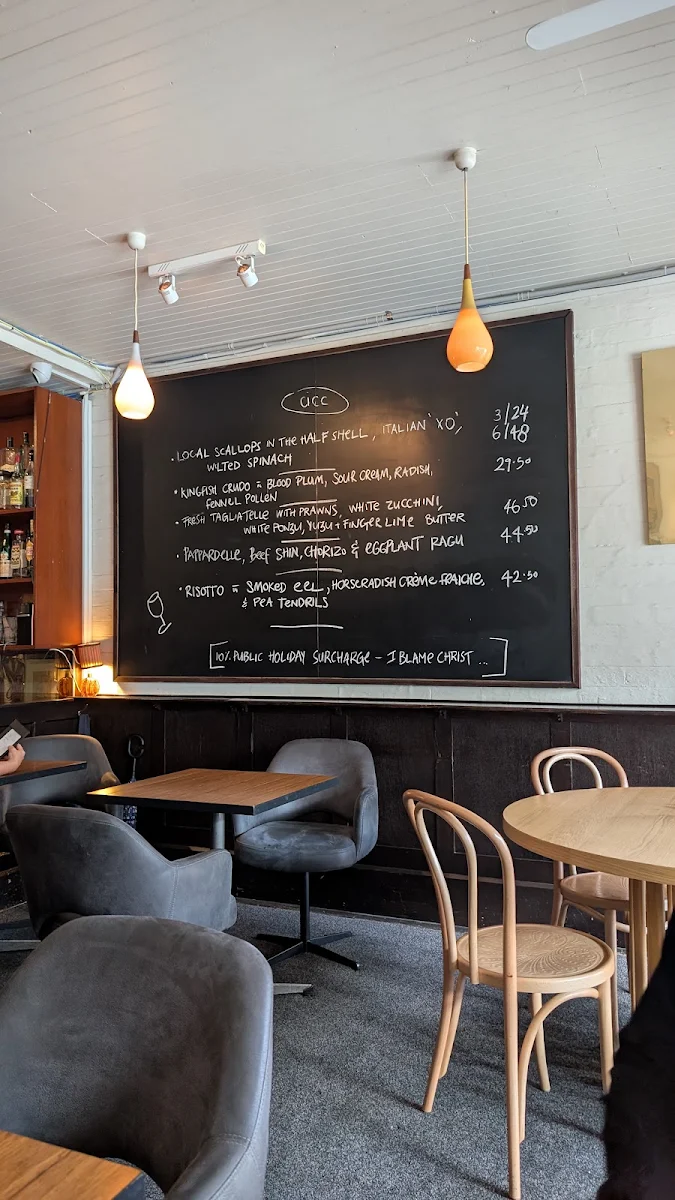 UCC
· LOCAL SCALLOPS IN THE HALF SHELL, ITALIAN 'XO', 3/24
WILTED SPINACH 6/48
· KINGFISH CRUDO = BLOOD PLUM, SOUR CREAM, RADISH, 29.50
FENNEL POLLEN
· FRESH TAGLIATELLE WITH PRAWNS, WHITE ZUCCHINI, 46.50
WHITE PONZU, YUZU + FINGER LIME BUTTER
· PAPPARDELLE, Beef SHIN, CHORIZO & EGGPLANT RAGU 44.50
· RISOTTO = SMOKED eeL, HORSERADISH CRÈME FRAICHE, 42.50
& PEA TENDRILS
[10% PUBLIC HOLIDAY SURCHARGE - I BLAME CHRIST ...]